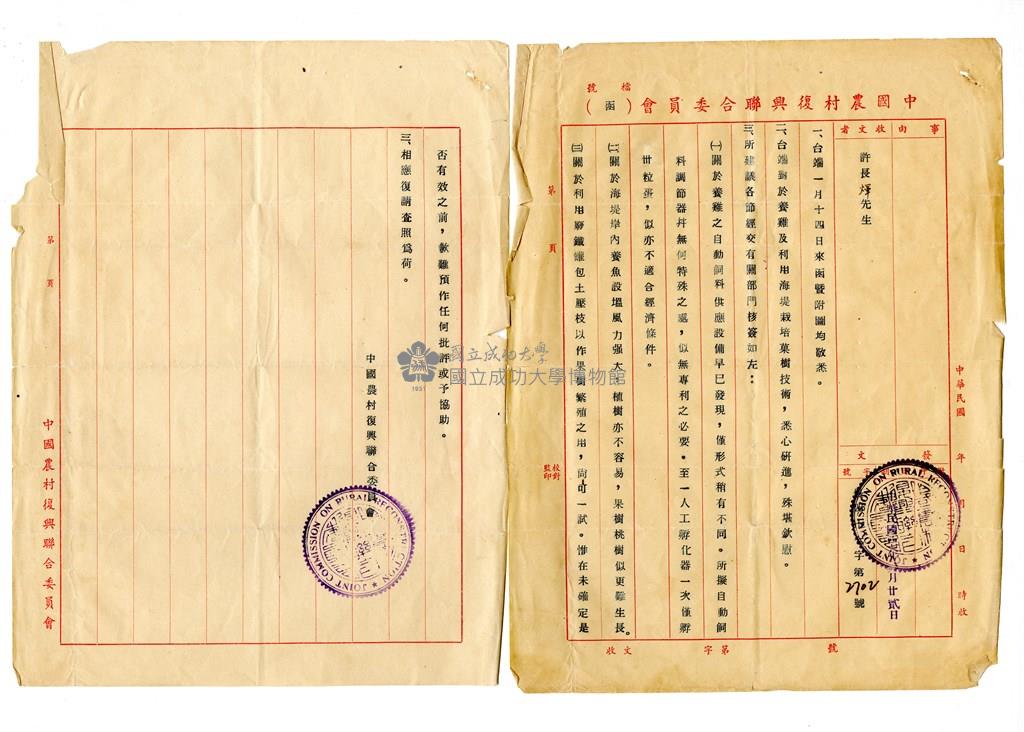 檔號
中國農村復興聯合委員會（函）
事由
收文者
許長煇先生
發文
字號
中華民國 年 月 日 時收
民國
月廿貳日
字第2702號
JOINT COMMISSION ON RURAL RECONSTRUCTION
一、台端一月十四日來函暨附圖均敬悉。
二、台端對於養雞及利用海堤栽培菓樹技術，悉心研進，殊堪欽慰。
三、所建議各節經交有關部門核簽如左：
㈠關於養雞之自動飼料供應設備早已發現，僅形式稍有不同。所擬自動飼
料調節器并無何特殊之處，似無專利之必要。至一人工孵化器一次僅孵
卅粒蛋，似亦不適合經濟條件。
㈡關於海堤岸內養魚設塭風力强大，植樹亦不容易，果樹桃樹似更難生長。
㈢關於利用廢鐵罐包土壓枝以作果樹繁殖之用，尚可一試。惟在未確定是
第 頁
校對
監印
收文 字第 號
否有效之前，歉難預作任何批評或予協助。
三、相應復請查照爲荷。
中國農村復興聯合委員會
JOINT COMMISSION ON RURAL RECONSTRUCTION
第 頁
中國農村復興聯合委員會
國立成功大學
國立成功大學博物館
1931